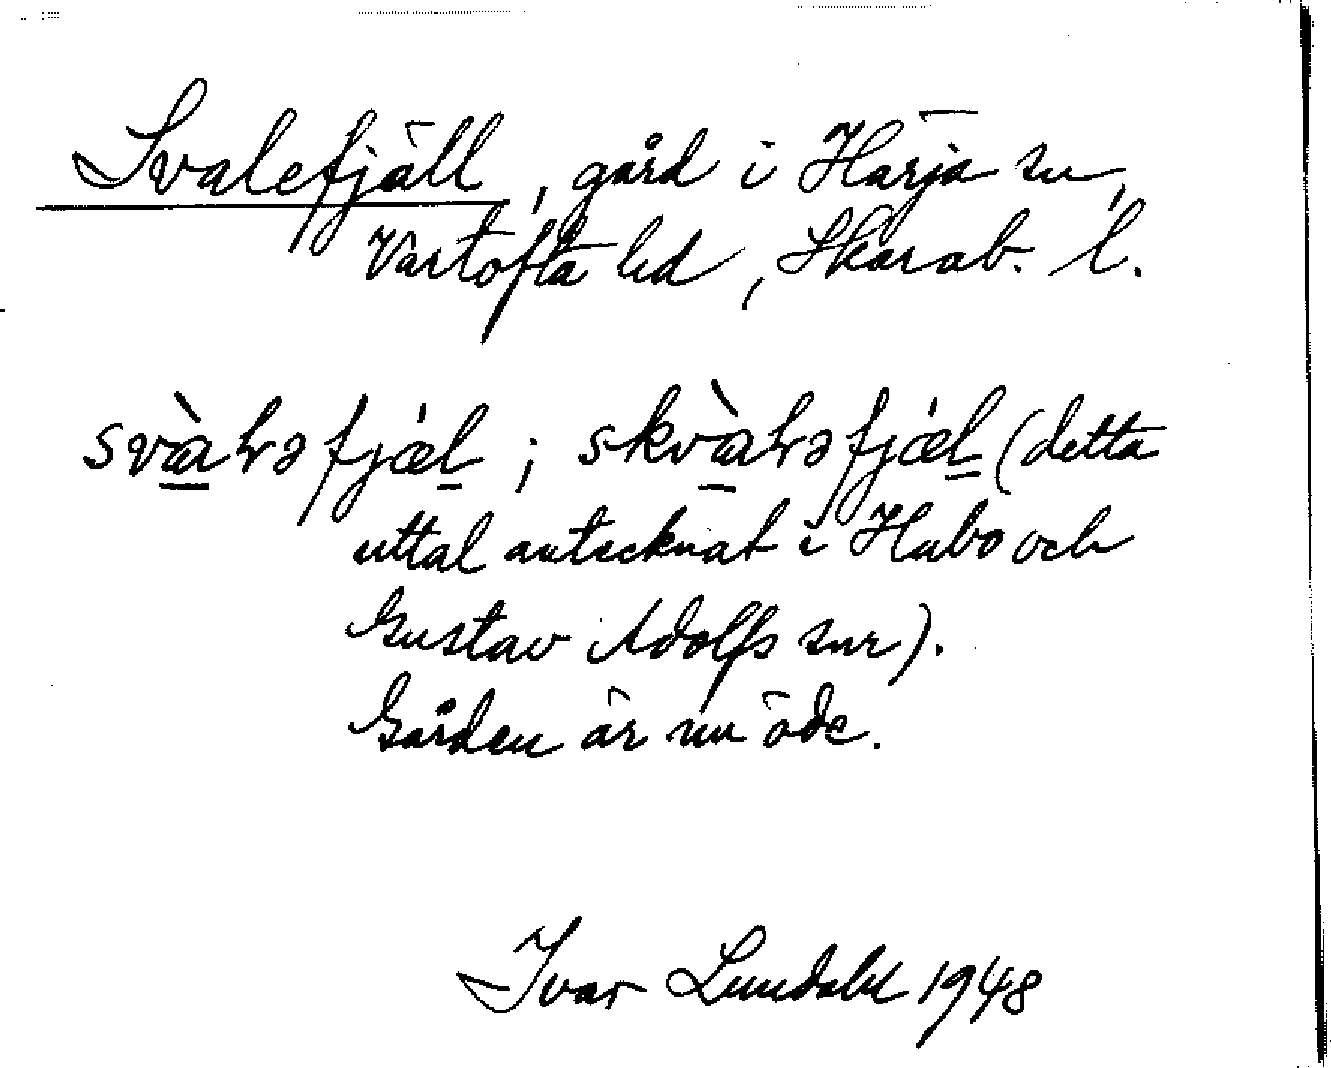 Svalefjäll, gård i Härja sn,
Vartofta hd, Skarab. l.
detta
uttal antecknat i Habo och
Gustav Adolfs snr).
Gården är nu öde.
Ivar Lundahl 1948